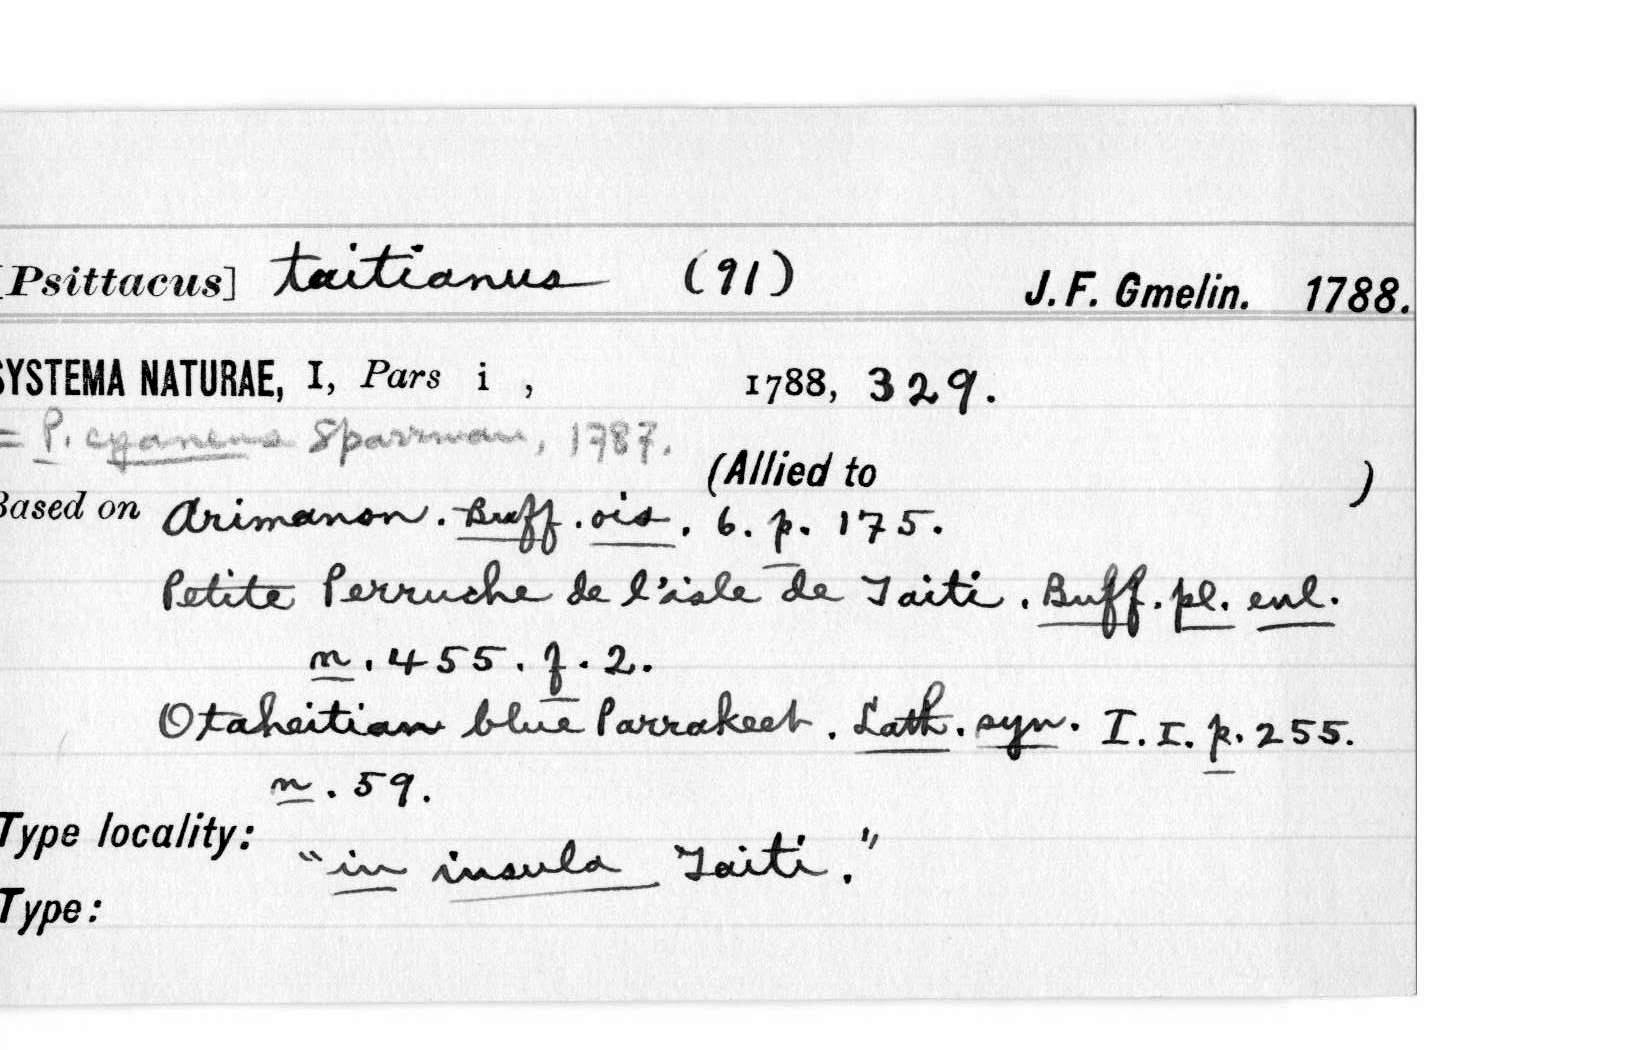 [Psittacus] taitianus (91) J. F. Gmelin. 1788.
SYSTEMA NATURAE, I, Pars i , 1788, 329.
= P. cyaneus Sparrman, 1787.
(Allied to )
Based on Arimanon. Buff. ois. 6. p. 175.
Petite Perruche de l'isle de Taiti. Buff. pl. enl.
n. 455. f. 2.
Otaheitian blue Parrakeet. Lath. syn. I. I. p. 255.
n. 59.
Type locality: "in insula Taiti."
Type: